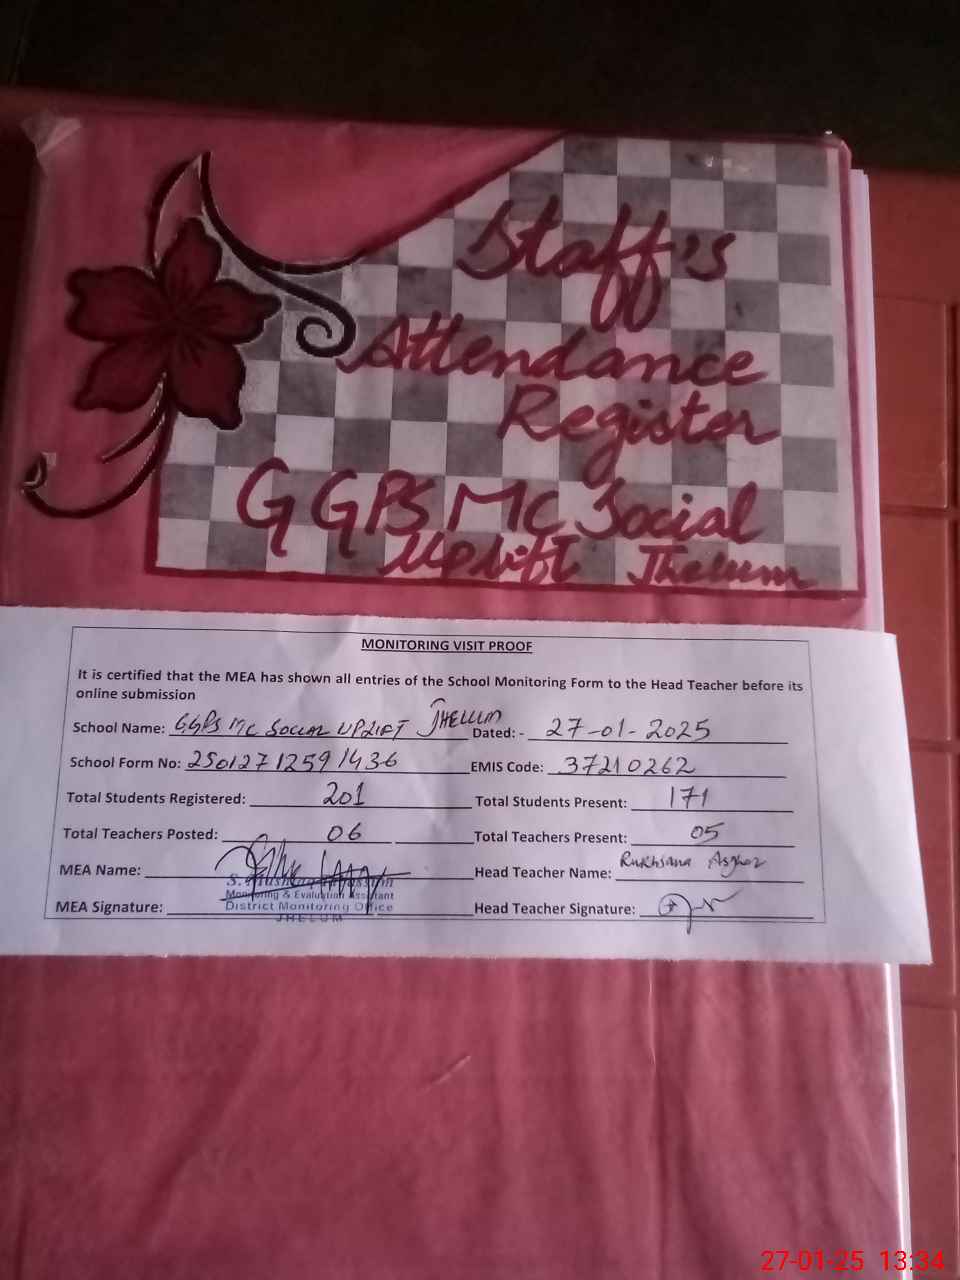 Staff's
Attendance
Register
GGPS MC Social
Uplift Jhelum
MONITORING VISIT PROOF
It is certified that the MEA has shown all entries of the School Monitoring Form to the Head Teacher before its
online submission
School Name: GGPS MC SOCIAL UPLIFT JHELUM Dated: - 27-01-2025
School Form No: 25012712591436 EMIS Code: 37210262
Total Students Registered: 201 Total Students Present: 171
Total Teachers Posted: 06 Total Teachers Present: 05
MEA Name: Head Teacher Name: Rukhsana Asghar
S. Hussain
Monitoring & Evaluation Assistant
District Monitoring Office
JHELUM
MEA Signature: Head Teacher Signature:
27-01-25 13:34